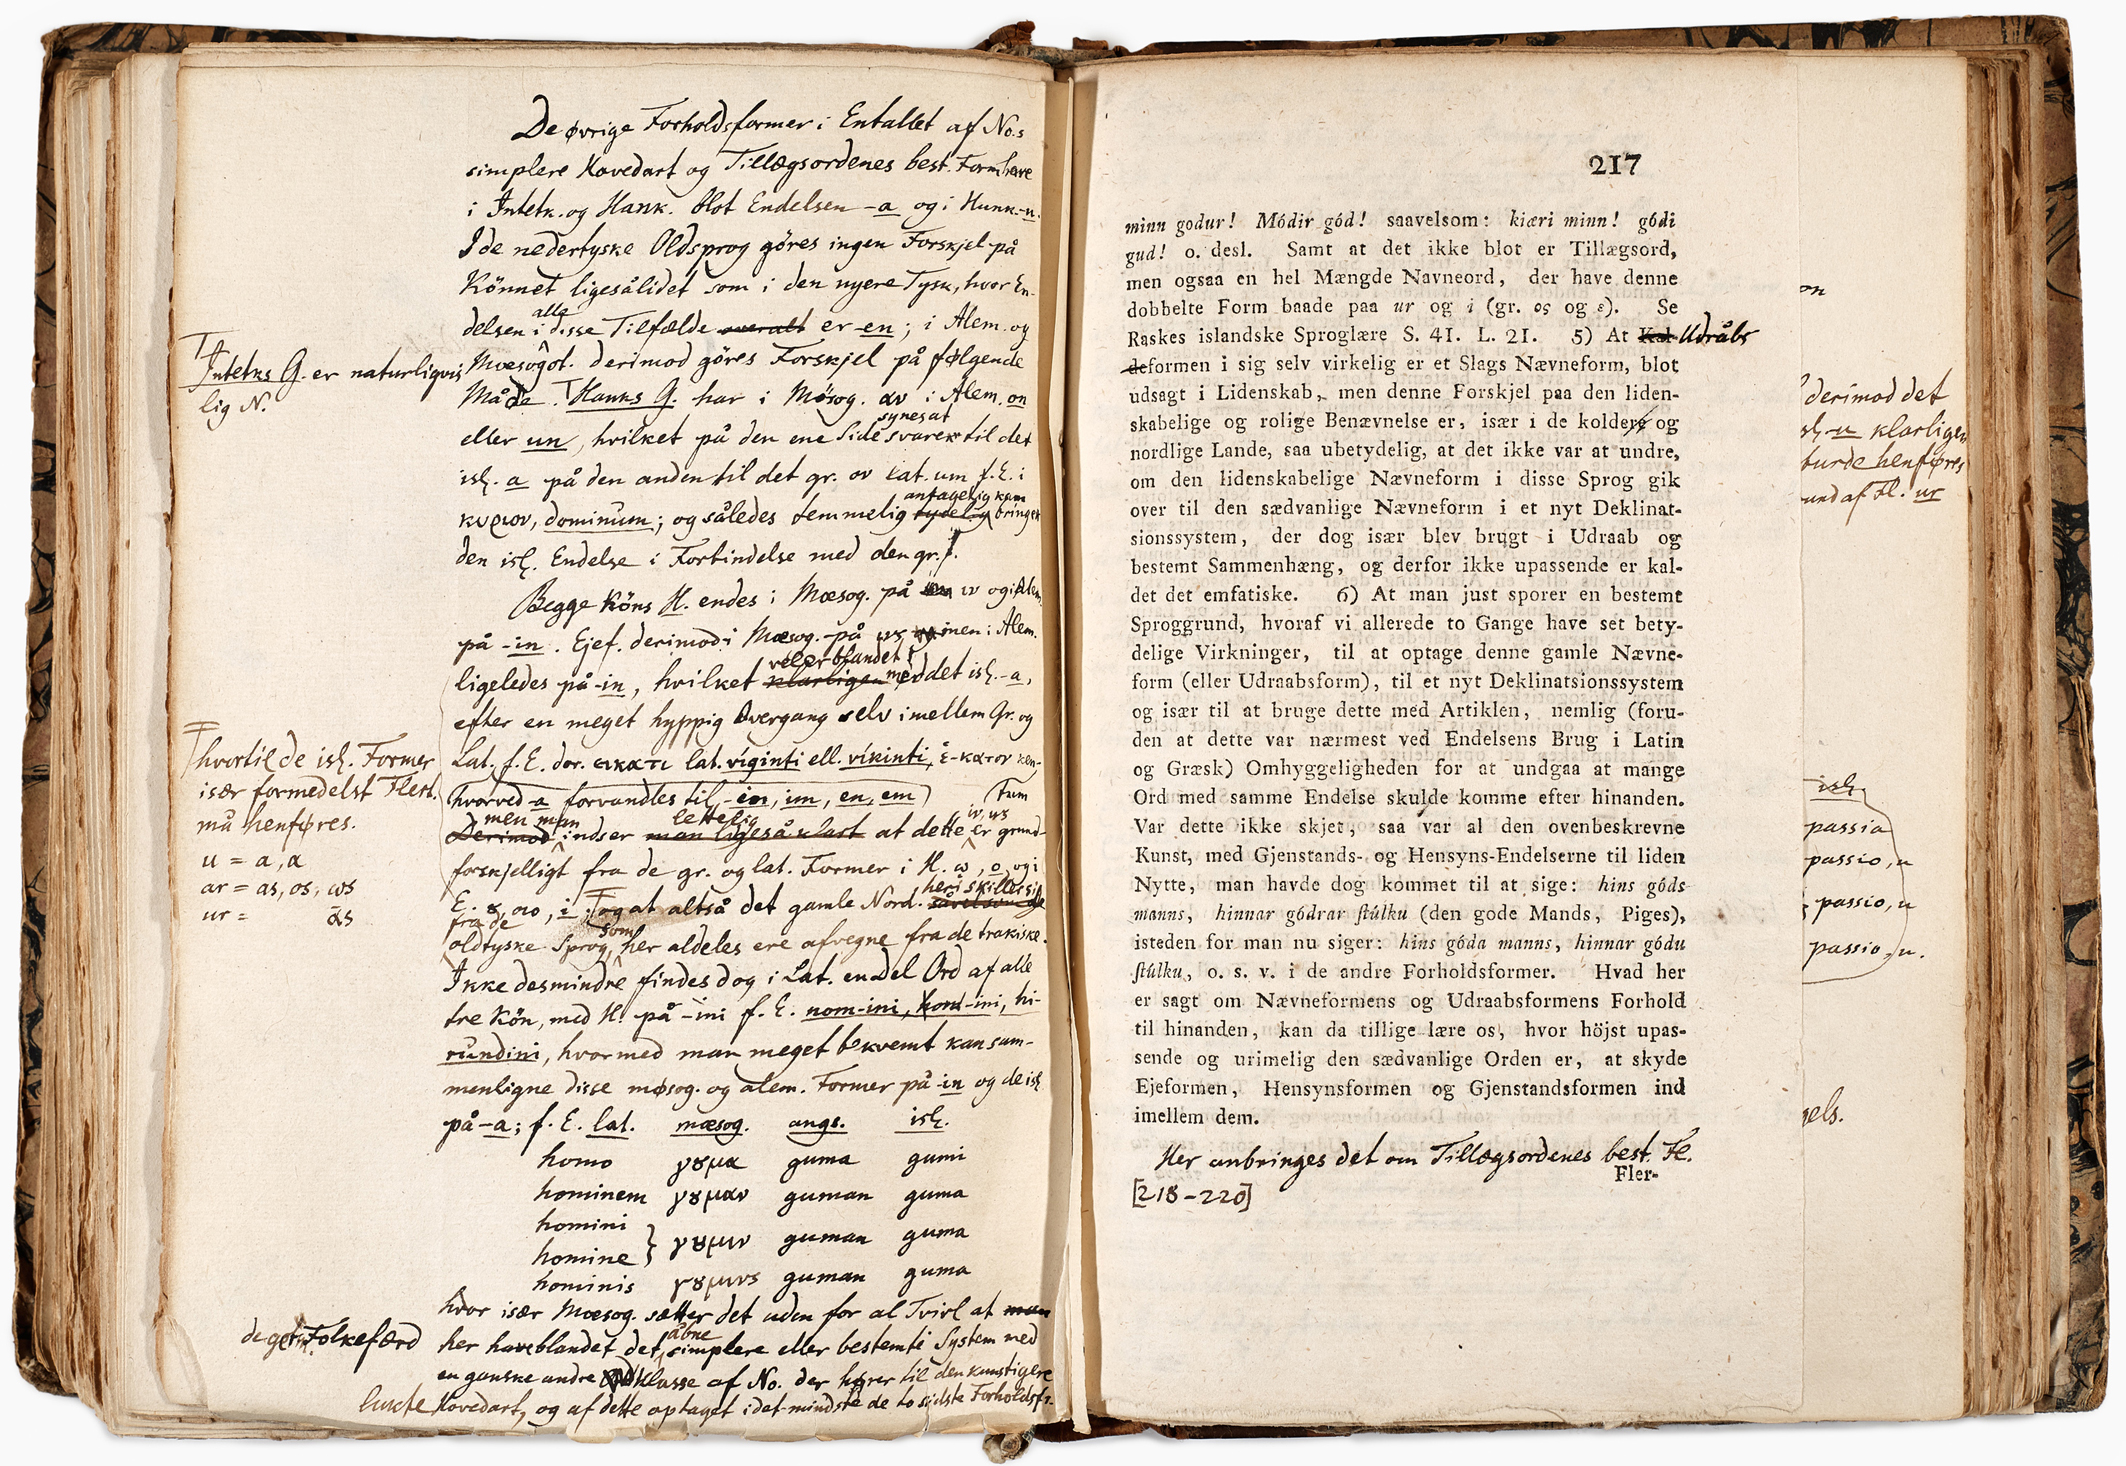 De øvrige Forholdsformer i Entallet af No.s
simplere Hovedart og Tillægsordenes best. Form have
i Intetk. og Hank. blot Endelsen -a og i Hunk. -u.
I de nedertyske Oldsprog göres ingen Forskjel på
Könnet ligesålidet som i den nyere Tysk, hvor En-
alle
delsen i disse Tilfælde overalt er -en; i Alem. og
Mæsogot. derimod göres Forskjel på følgende
Måde. Hanks G. har i Møsog. αν i Alem. on
synes at
eller un, hvilket på den ene Side svarer til det
isl. a på den anden til det gr. ον lat. um f. E. i
antagelig kan
κυριον, dominum; og således temmelig tydelig bringer
den isl. Endelse i Forbindelse med den gr.
Begge Köns H. endes i Mæsog. på ιν og i Alem.
på -in. Ejef. derimod i Mæsog. på ινς inen i Alem.
vel er blandet
ligeledes på -in, hvilket klarligen med det isl. -a,
efter en meget hyppig Overgang selv imellem Gr. og
Lat. f. E. dor. εικατι lat. viginti ell. vikinti, ἑ-κατον cen-
tum
hvorved -a forvandles til -in, im, en, em)
men man lettelig ιν, ινς
Derimod indser man ligeså klart at dette er grund-
forskjelligt fra de gr. og lat. Former i H. ω, o, og i
heri skiller sig
E. ȣ, οιο, i; og at altså det gamle Nord. såvelsom de
fra de som
oldtyske Sprog, her aldeles ere afvegne fra de trakiske.
Ikke desmindre findes dog i Lat. en del Ord af alle
tre Kön, med H. på -ini f. E. nom-ini, hom-ini, hi-
rundini, hvormed man meget bekvemt kan sam-
menligne disse møsog. og alem. Former på -in og de isl.
på -a; f. E. lat. mæsog. angs. isl.
homo γȣμα guma gumi
hominem γȣμαν guman guma
homini
homine } γȣμιν guman guma
hominis γȣμινς guman guma
hvor især Mæsog. sætter det uden for al Tvivl at man
åbne
her have blandet det simplere eller bestemte System med
en ganske andre Klasse af No. der hører til den kunstigere
lukte Hovedart, og af dette optaget i det mindste de to sidste Forholdsf-
Intetks G. er naturligvis
lig N.
hvortil de isl. Former
især formedelst Flert.
må henføres.
u = a, α
ar = as, os, ως
ur = ας
Folkefærd
217
minn godur! Módir gód! saavelsom: kiæri minn! gódi
gud! o. desl. Samt at det ikke blot er Tillægsord,
men ogsaa en hel Mængde Navneord, der have denne
dobbelte Form baade paa ur og i (gr. ος og ε). Se
Raskes islandske Sproglære S. 41. L. 21. 5) At Kal- Udråbs
deformen i sig selv virkelig er et Slags Nævneform, blot
udsagt i Lidenskab, men denne Forskjel paa den liden-
skabelige og rolige Benævnelse er, især i de koldere og
nordlige Lande, saa ubetydelig, at det ikke var at undre,
om den lidenskabelige Nævneform i disse Sprog gik
over til den sædvanlige Nævneform i et nyt Deklinat-
sionssystem, der dog især blev brugt i Udraab og
bestemt Sammenhæng, og derfor ikke upassende er kal-
det det emfatiske. 6) At man just sporer en bestemt
Sproggrund, hvoraf vi allerede to Gange have set bety-
delige Virkninger, til at optage denne gamle Nævne-
form (eller Udraabsform), til et nyt Deklinatsionssystem
og især til at bruge dette med Artiklen, nemlig (foru-
den at dette var nærmest ved Endelsens Brug i Latin
og Græsk) Omhyggeligheden for at undgaa at mange
Ord med samme Endelse skulde komme efter hinanden.
Var dette ikke skjet, saa var al den ovenbeskrevne
Kunst, med Gjenstands- og Hensyns-Endelserne til liden
Nytte, man havde dog kommet til at sige: hins góds
manns, hinnar gódrar ſtúlku (den gode Mands, Piges),
isteden for man nu siger: hins góda manns, hinnar gódu
ſtúlku, o. s. v. i de andre Forholdsformer. Hvad her
er sagt om Nævneformens og Udraabsformens Forhold
til hinanden, kan da tillige lære os, hvor höjst upas-
sende og urimelig den sædvanlige Orden er, at skyde
Ejeformen, Hensynsformen og Gjenstandsformen ind
imellem dem.
Her anbringes det om Tillægsordenes best. Fl.
Fler-
[218-220]
on
derimod det
-u klarligen
turde henføres
und af Fl. ur
isl.
passia
passio, u
passio, u
passio, u.
els.